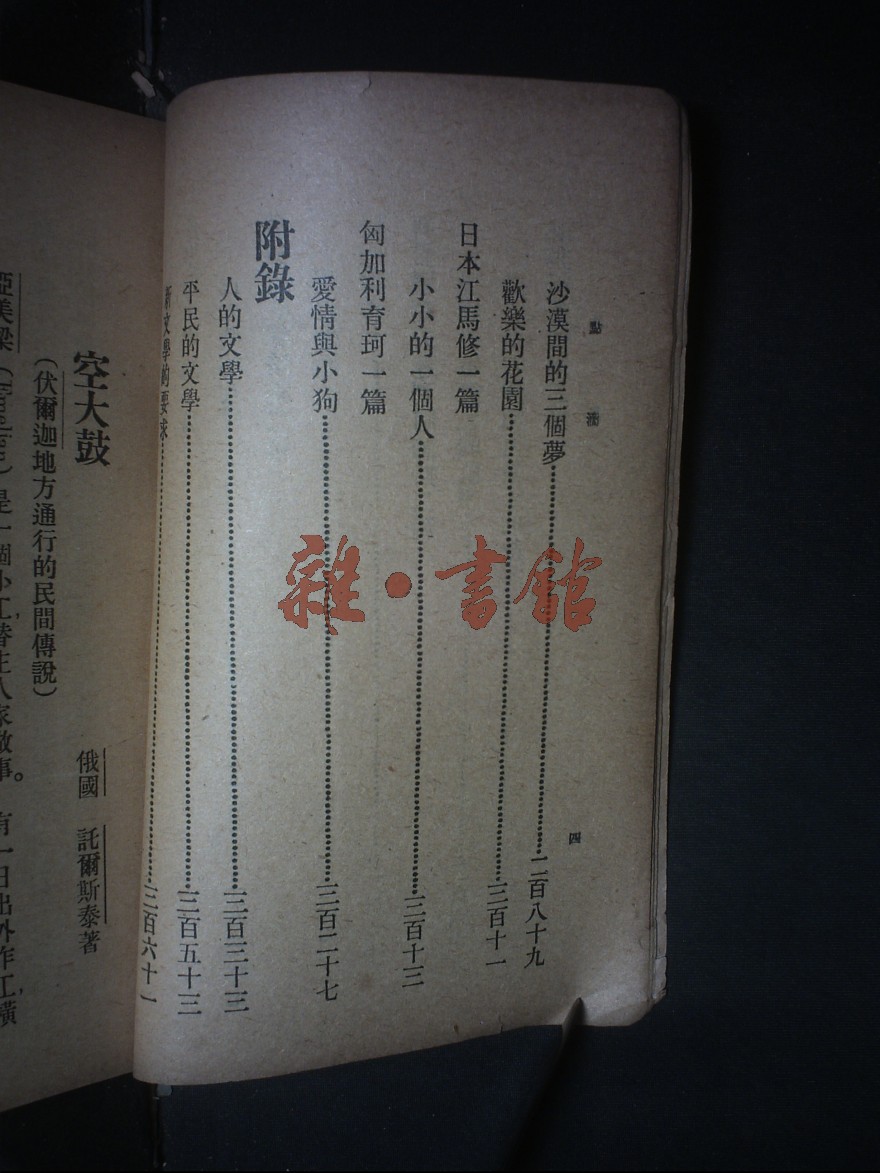 點滴
四
沙漠間的三個夢……二百八十九
歡樂的花園……三百十一
日本江馬修一篇
小小的一個人……三百十三
匈加利育珂一篇
愛情與小狗……三百二十七
附錄
人的文學……三百三十三
平民的文學……三百五十三
新文學的要求……三百六十一
空大鼓
俄國 託爾斯泰著
(伏爾迦地方通行的民間傳說)
亞美梁 是一個小工,替主人家做事。有一日出外作工,橫
雜·書館